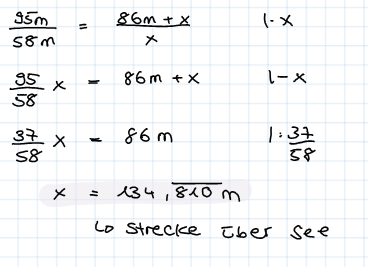 95m/58m = 86m + x/x | · x
95/58 x = 86m + x | - x
37/58 x = 86m | : 37/58
x = 134,8̅1̅0̅ m
↳ Strecke über See